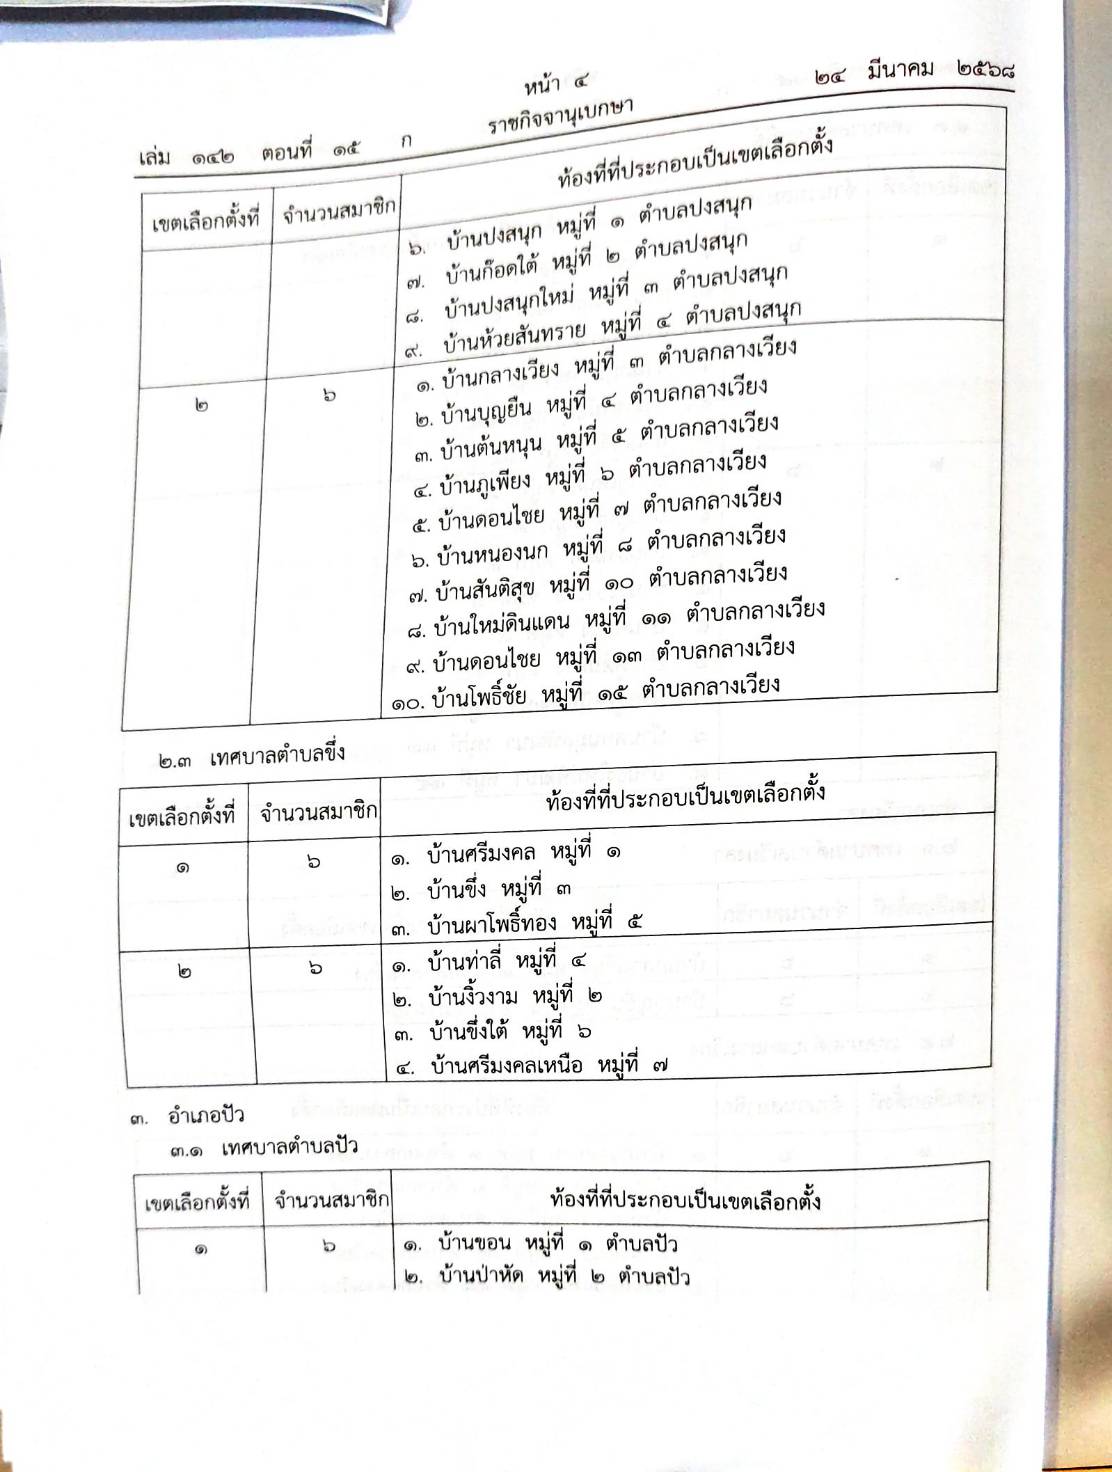 หน้า ๔
เล่ม ๑๔๒ ตอนที่ ๑๕ ก ราชกิจจานุเบกษา ๒๔ มีนาคม ๒๕๖๘
เขตเลือกตั้งที่ จำนวนสมาชิก ท้องที่ที่ประกอบเป็นเขตเลือกตั้ง
๖. บ้านปงสนุก หมู่ที่ ๑ ตำบลปงสนุก
๗. บ้านก๊อดใต้ หมู่ที่ ๒ ตำบลปงสนุก
๘. บ้านปงสนุกใหม่ หมู่ที่ ๓ ตำบลปงสนุก
๙. บ้านห้วยสันทราย หมู่ที่ ๔ ตำบลปงสนุก
๒ ๖ ๑. บ้านกลางเวียง หมู่ที่ ๓ ตำบลกลางเวียง
๒. บ้านบุญยืน หมู่ที่ ๔ ตำบลกลางเวียง
๓. บ้านต้นหนุน หมู่ที่ ๕ ตำบลกลางเวียง
๔. บ้านภูเพียง หมู่ที่ ๖ ตำบลกลางเวียง
๕. บ้านดอนไชย หมู่ที่ ๗ ตำบลกลางเวียง
๖. บ้านหนองนก หมู่ที่ ๘ ตำบลกลางเวียง
๗. บ้านสันติสุข หมู่ที่ ๑๐ ตำบลกลางเวียง
๘. บ้านใหม่ดินแดน หมู่ที่ ๑๑ ตำบลกลางเวียง
๙. บ้านดอนไชย หมู่ที่ ๑๓ ตำบลกลางเวียง
๑๐. บ้านโพธิ์ชัย หมู่ที่ ๑๕ ตำบลกลางเวียง
๒.๓ เทศบาลตำบลขึ่ง
เขตเลือกตั้งที่ จำนวนสมาชิก ท้องที่ที่ประกอบเป็นเขตเลือกตั้ง
๑ ๖ ๑. บ้านศรีมงคล หมู่ที่ ๑
๒. บ้านขึ่ง หมู่ที่ ๓
๓. บ้านผาโพธิ์ทอง หมู่ที่ ๕
๒ ๖ ๑. บ้านท่าลี่ หมู่ที่ ๔
๒. บ้านงิ้วงาม หมู่ที่ ๒
๓. บ้านขึ่งใต้ หมู่ที่ ๖
๔. บ้านศรีมงคลเหนือ หมู่ที่ ๗
๓. อำเภอปัว
๓.๑ เทศบาลตำบลปัว
เขตเลือกตั้งที่ จำนวนสมาชิก ท้องที่ที่ประกอบเป็นเขตเลือกตั้ง
๑ ๖ ๑. บ้านขอน หมู่ที่ ๑ ตำบลปัว
๒. บ้านป่าหัด หมู่ที่ ๒ ตำบลปัว